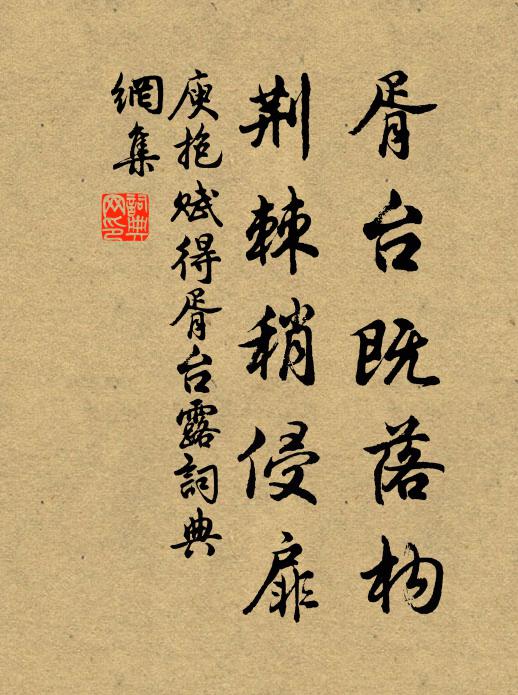 胥台既落构
荆棘稍侵扉
庾抱赋得胥台露詞典
網集
詞典网印